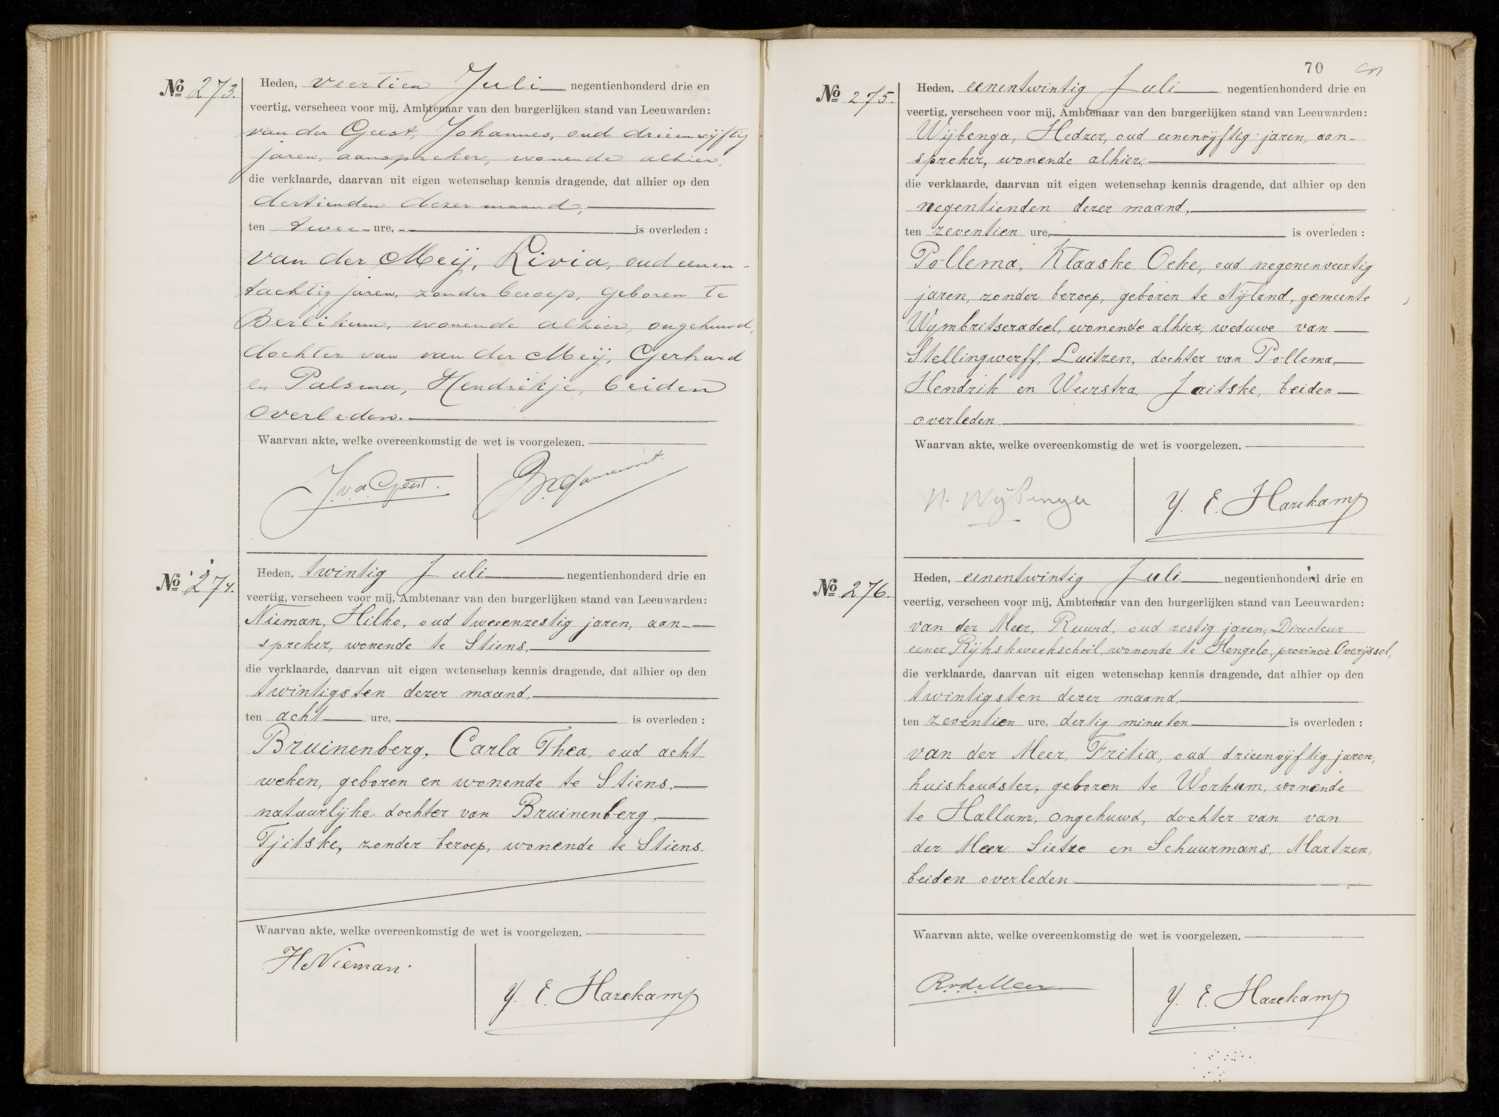 No 273.
Heden, veertien Juli negentienhonderd drie en
veertig, verscheen voor mij, Ambtenaar van den burgerlijken stand van Leeuwarden:
van der Geest, Johannes, oud drieenvijftig
jaren, aanspreker, wonende alhier,
die verklaarde, daarvan uit eigen wetenschap kennis dragende, dat alhier op den
dertienden dezer maand,
ten twee ure, is overleden:
van der Meij, Livia, oud eenen-
tachtig jaren, zonder beroep, geboren te
Berlikum, wonende alhier, ongehuwd,
dochter van van der Meij, Gerhard
en Palsma, Hendrikje, beiden
overleden.
Waarvan akte, welke overeenkomstig de wet is voorgelezen.
J. v. d. Geest.
No 274.
Heden, twintig Juli negentienhonderd drie en
veertig, verscheen voor mij, Ambtenaar van den burgerlijken stand van Leeuwarden:
Nieman, Hilko, oud tweeenzestig jaren, aan-
spreker, wonende te Stiens,
die verklaarde, daarvan uit eigen wetenschap kennis dragende, dat alhier op den
twintigsten dezer maand,
ten acht ure, is overleden:
Bruinenberg, Carla Thea, oud acht
weken, geboren en wonende te Stiens,
natuurlijke dochter van Bruinenberg,
Tjitske, zonder beroep, wonende te Stiens.
Waarvan akte, welke overeenkomstig de wet is voorgelezen.
H. Nieman.
Y. E. Harekamp
70
No 275.
Heden, eenentwintig Juli negentienhonderd drie en
veertig, verscheen voor mij, Ambtenaar van den burgerlijken stand van Leeuwarden:
Wijbenga, Hedzer, oud eenenvijftig jaren, aan-
spreker, wonende alhier,
die verklaarde, daarvan uit eigen wetenschap kennis dragende, dat alhier op den
negentienden dezer maand,
ten zeventien ure, is overleden:
Pollema, Klaaske Oeke, oud negenenveertig
jaren, zonder beroep, geboren te Nijland, gemeente
Wymbritseradeel, wonende alhier, weduwe van
Stellingwerff, Luitzen, dochter van Pollema,
Hendrik en Weerstra, Jaitske, beiden
overleden
Waarvan akte, welke overeenkomstig de wet is voorgelezen.
H. Wijbenga
Y. E. Harekamp
No 276.
Heden, eenentwintig Juli negentienhonderd drie en
veertig, verscheen voor mij, Ambtenaar van den burgerlijken stand van Leeuwarden:
van der Meer, Ruurd, oud zestig jaren, Directeur
eener Rijkskweekschool, wonende te Hengelo, provincie Overijssel,
die verklaarde, daarvan uit eigen wetenschap kennis dragende, dat alhier op den
twintigsten dezer maand,
ten zeventien ure, dertig minuten is overleden:
van der Meer, Fritia, oud drieenvijftig jaren,
huishoudster, geboren te Workum, wonende
te Hallum, ongehuwd, dochter van van
der Meer, Sietze en Schuurmans, Martzen,
beiden overleden
Waarvan akte, welke overeenkomstig de wet is voorgelezen.
R. v. d. Meer
Y. E. Harekamp